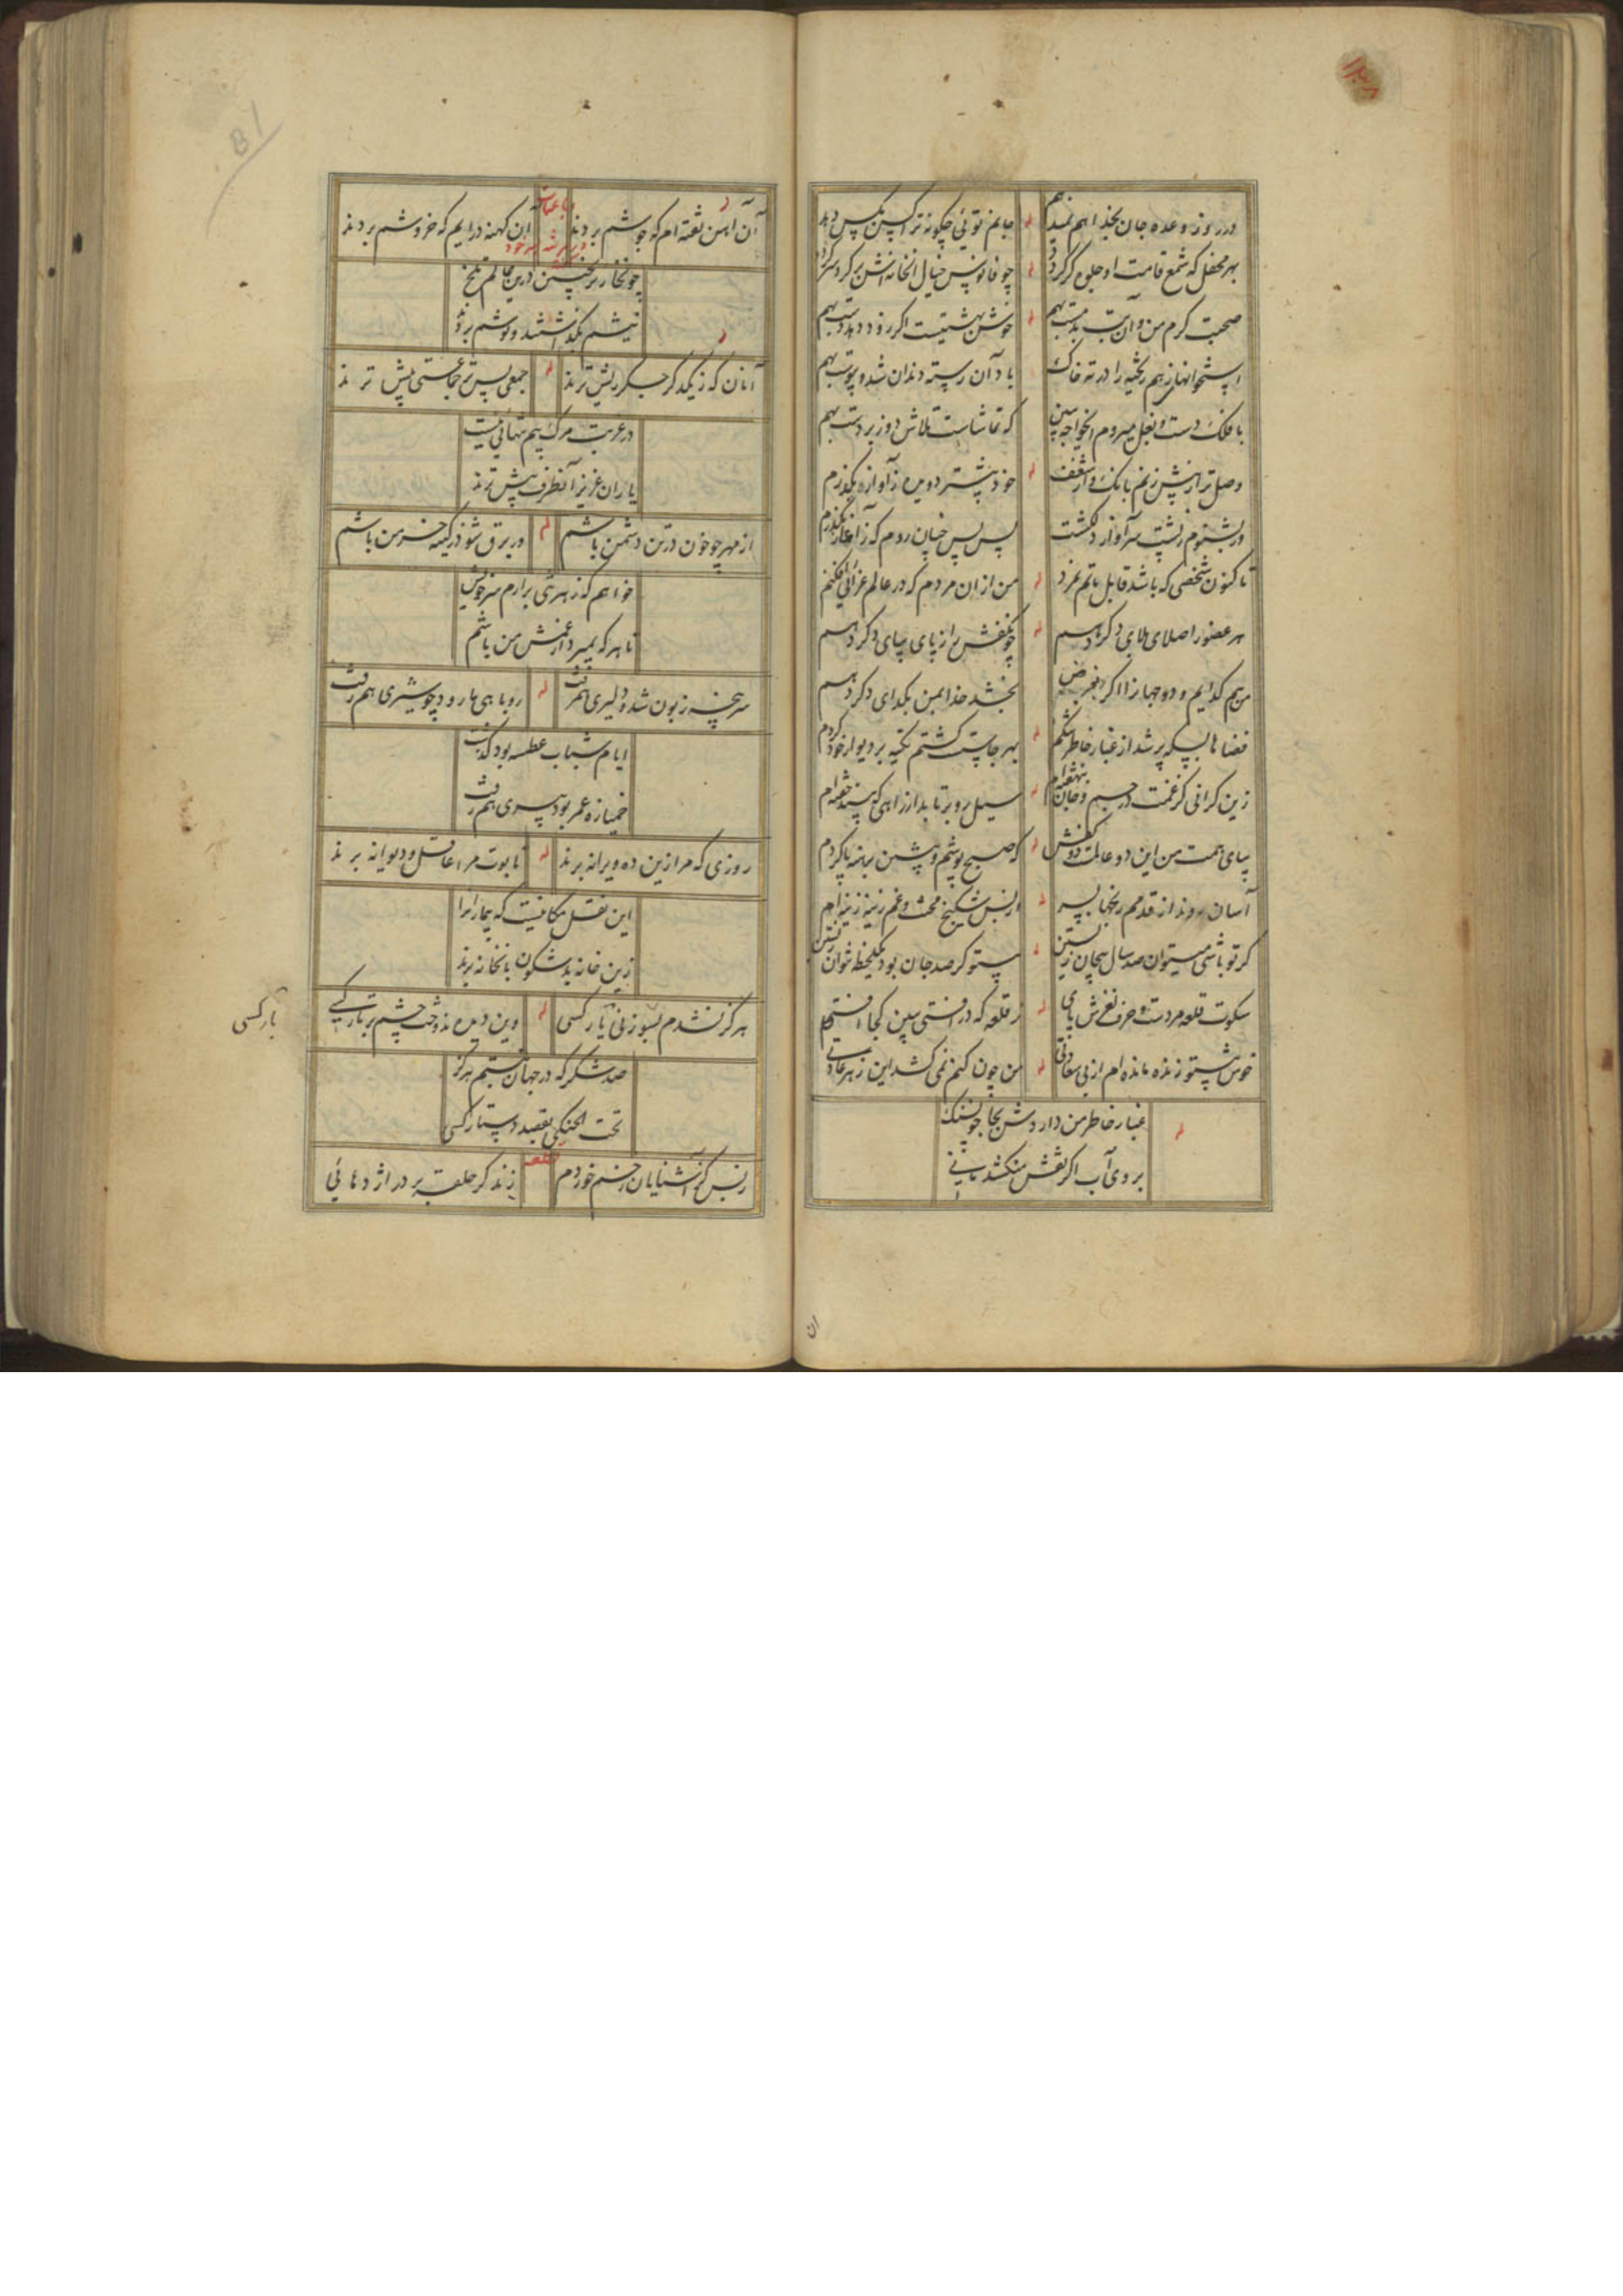 ۱۲۳۸
در روز وعده جان بخدا هم نمیدهم
جانم توئی چگونه ترا کس بکس دهد
بهر محفل که شمع قامت او جلوه گر گردد
چو فانوس خیال آنخانه اش بر گرد سر گردد
صحبت گرم من و آن بت بدمست بهم
خوش بهشتیست اگر رو دهد دست بهم
استخوانها ز هم ریخته را در ته خاک
یاد آن رسته دندان شد و پیوست بهم
با فلک دست و بغل میروم ای خواجه ببین
که تماشاست تلاش دو زبردست بهم
وصل ترا ز پیش زنم بانک و از شعف
خود پیشتر دویده ز آوازه بگذرم
ور بشنوم ز پشت سر آواز دلکشت
پس پس چنان روم که ز آغاز بگذرم
تا کنون شخصی که باشد قابل ماتم نمرد
من از ان مردم که در عالم عزائی افکنم
هر عضو را صلای بلای دگر دهم
چو کفش را ز پای بپای دگر دهم
من هم گدایم و دو جهان را اگر بفرض
بخشد خدا بمن بگدای دگر دهم
فضاها بسکه پر شد از غبار خاطر تنگم
بهر جا پشت گشتم تکیه بر دیوار خود کردم
زین گرانی کز غمت در جسم و جان بنهفته ام
سیل رو بر تابد از راهی که بیند خفته ام
بپای همت من این دو عالمت دو کفش
که صبح پوشم و پیشین برهنه پا گردم
آسان روند از قدمم رنجها بسر
از بس شکنج محنت و غم زینه زینه ام
گر تو باشی میتوان صد سال بیجان زیستن
بیتو گر صد جان بود یکلحظه نتوان زیستن
سکوت قلعه مردست و حرف لغزش پای
ز قلعه که در افتی ببین کجا افتی
خوش بیتو زنده مانده ام از بی سعادتی
من چون کنم نمی کشد این زهر عادتی
غبار خاطر من دارد شن بجا چو سنک
بروی آب اگر نقش من کشد مانی
ان
81
رباعیات
آن آهن تفته ام که جوشم بردند
آن کهنه درایم که خروشم بردند
در مرثیه خود
چونخار بر چنین درین عالم تلخ
نیشم بگذاشتند و نوشم بردند
آنان که ز یکدگر جگر ریش ترند
جمعی پس تر جماعتی پیش ترند
در غربت مرک بیم تنهائی نیست
یاران عزیز آنطرف بیش ترند
از مهر چو خون در تن دشمن باشم
ور برق شوند کینه خرمن باشم
خواهم که ز هستی برارم سر خویش
تا هر که بمیرد از غمش من باشم
سرپنجه زبون شد و دلیری هم رفت
روباهی ها رود چو شیری هم رفت
ایام شباب عطسه بود گذشت
خمیازه عمر بود پیری هم رفت
روزی که مرا زین ده ویرانه برند
تابوت مرا عاقل و دیوانه برند
این نقل مکانیست که بیمارانرا
زین خانه بد شکون بانخانه برند
هرگز نشدم بسوزنی بار کسی
وین دیده ندوخت چشم بر تار کسی
بار کسی
صد شکر که در جهان نبستم هرگز
تحت الحنکی بقصد دستار کسی
قطعه
ز بس کز آشنایان زخم خوردم
زند گر حلقه بر در اژدهائی